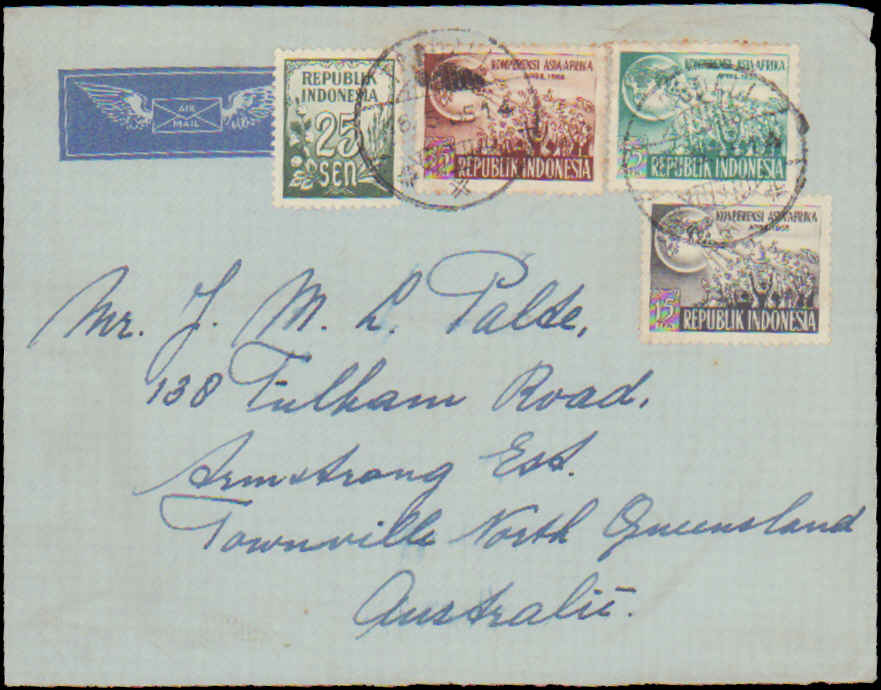 AIR
MAIL
REPUBLIK
INDONESIA
25
SEN
KONPERENSI ASIA-AFRIKA
APRIL 1955
REPUBLIK INDONESIA
KONPERENSI ASIA-AFRIKA
APRIL 1955
REPUBLIK INDONESIA
KONPERENSI ASIA-AFRIKA
APRIL 1955
15
REPUBLIK INDONESIA
Mr. J. M. L. Palte,
138 Fulham Road,
Armstrong Est.
Townville North Queensland
Australië.